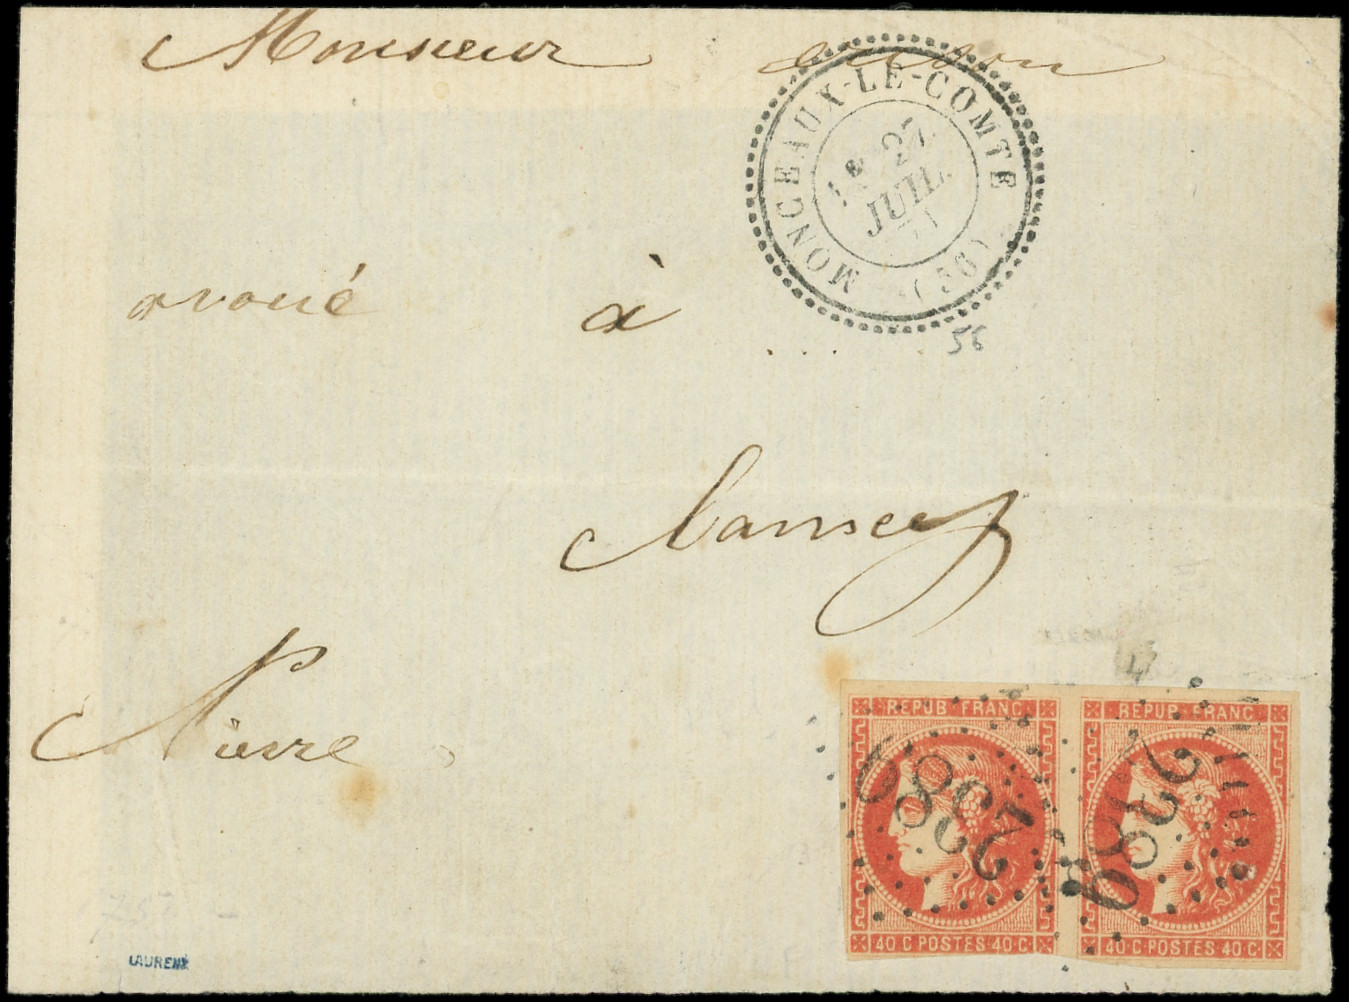 Monsieur
MONCEAUX-LE-COMTE
1e 27
JUIL.
71
(56)
avoué à
56
Clamecy
Nièvre
REPUB. FRANC. REPUB. FRANC.
2389 2389
40 C POSTES 40 C 40 C POSTES 40 C
LAURENX